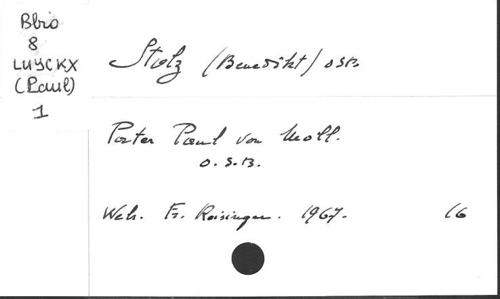 Bbio
8
LUYCKX
(Paul)
1
Stolz (Benedikt) OSB.
Pater Paul von Moll.
O.S.B.
Wels. Fr. Reisinger. 1967. 16